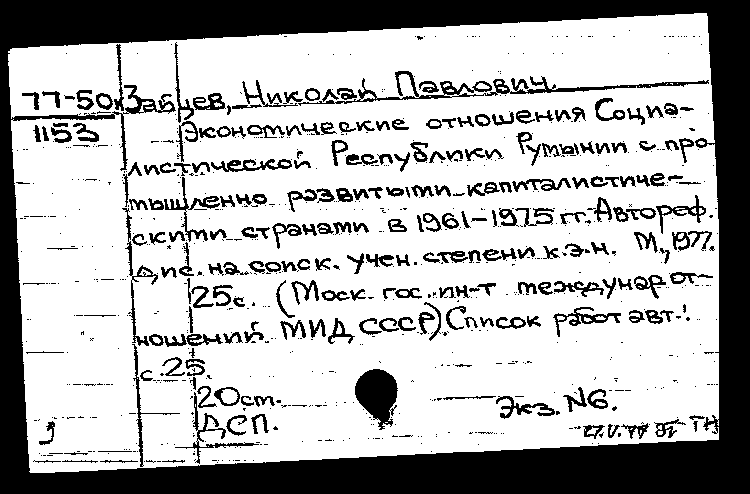 77-50к Зайцев, Николай Павлович.
1153 Экономические отношения Социа-
листической Республики Румынии с про-
мышленно развитыми капиталистиче-
скими странами в 1961-1975 гг. Автореф.
дис. на соиск. учен. степени к.э.н. М., 1977.
25с. (Моск. гос. ин-т междунар от-
ношений МИД СССР). Список работ авт.:
с. 25.
20ст.
ДСП. Экз. №6.